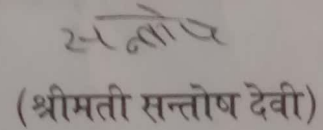 सन्तोष
(श्रीमती सन्तोष देवी)